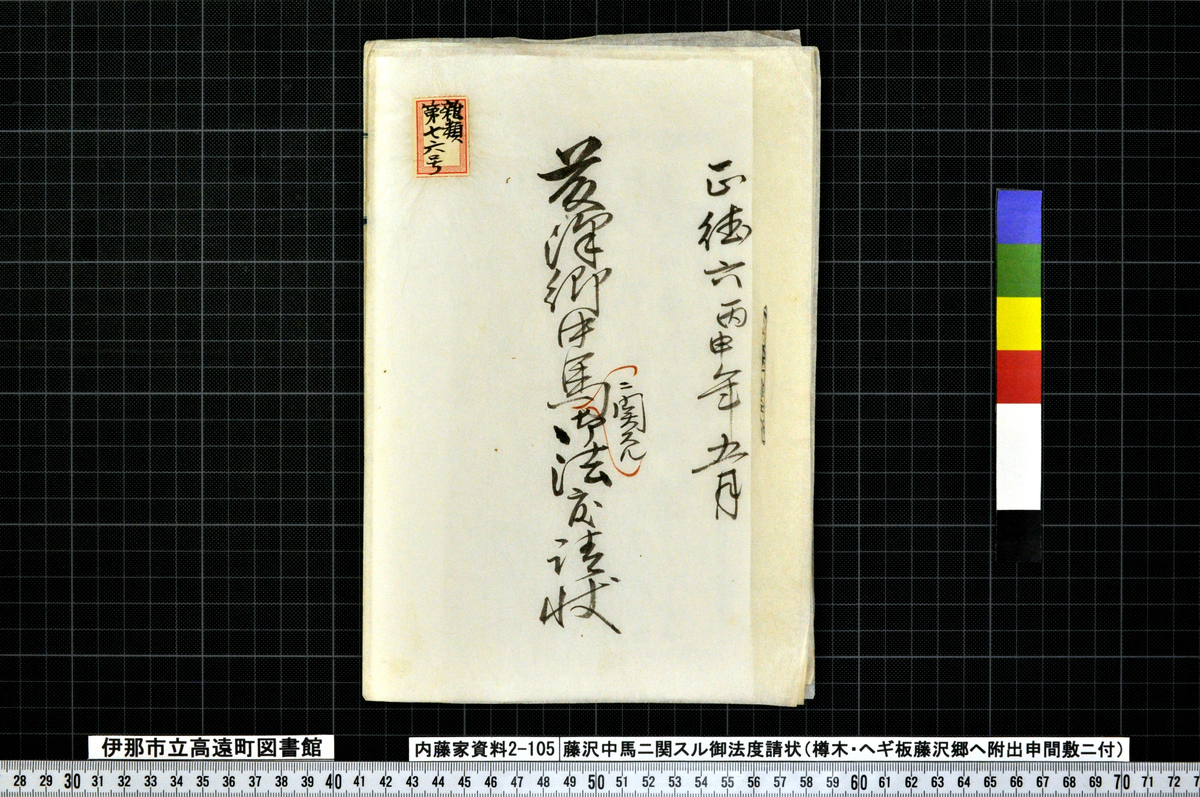 正徳六丙申年五月
藤澤郷中馬御法度請状
ニ関スル
雑類
第七六号
伊那市立高遠町図書館
内藤家資料2-105 藤沢中馬ニ関スル御法度請状(樽木・ヘギ板藤沢郷ヘ附出申間敷ニ付)
28 29 30 31 32 33 34 35 36 37 38 39 40 41 42 43 44 45 46 47 48 49 50 51 52 53 54 55 56 57 58 59 60 61 62 63 64 65 66 67 68 69 70 71 72